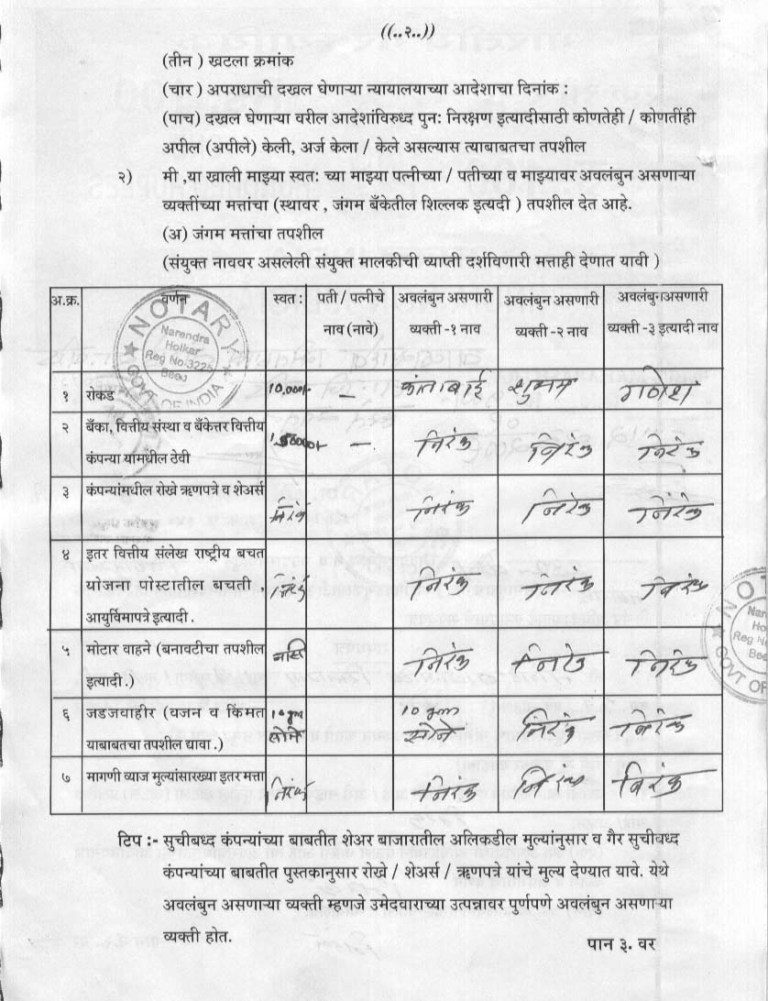 ((..२..))
(तीन ) खटला क्रमांक
(चार ) अपराधाची दखल घेणाऱ्या न्यायालयाच्या आदेशाचा दिनांक :
(पाच) दखल घेणाऱ्या वरील आदेशांविरुध्द पुन: निरक्षण इत्यादीसाठी कोणतेही / कोणतींही
अपील (अपीले) केली, अर्ज केला / केले असल्यास त्याबाबतचा तपशील
२) मी ,या खाली माझ्या स्वत: च्या माझ्या पत्नीच्या / पतीच्या व माझ्यावर अवलंबुन असणाऱ्या
व्यक्तींच्या मत्तांचा (स्थावर , जंगम बँकेतील शिल्लक इत्यदी ) तपशील देत आहे.
(अ) जंगम मत्तांचा तपशील
(संयुक्त नाववर असलेली संयुक्त मालकीची व्याप्ती दर्शविणारी मत्ताही देणात यावी )
अ.क्र. वर्णन स्वत : पती / पत्नीचे अवलंबुन असणारी अवलंबुन असणारी अवलंबुनअसणारी
नाव (नावे) व्यक्ती -१ नाव व्यक्ती -२ नाव व्यक्ती -३ इत्यादी नाव
NOTARY
Narendra
Holkar
Reg No-3225
Beed
GOVT OF INDIA
१ रोकड 10,000/- – कांताबाई शुभम गणेश
२ बँका, वित्तीय संस्था व बँकेत्तर वित्तीय – निरंक निरंक निरंक
कंपन्या यांमधील ठेवी
३ कंपन्यांमधील रोखे ऋणपत्रे व शेअर्स निरंक निरंक निरंक निरंक
४ इतर वित्तीय संलेख राष्ट्रीय बचत
योजना पोस्टातील बचती , निरंक निरंक निरंक निरंक
आयुर्विमापत्रे इत्यादी .
५ मोटार वाहने (बनावटीचा तपशील निरंक निरंक निरंक
इत्यादी .)
६ जडजवाहीर (वजन व किंमत 10 gm 10 gm
याबाबतचा तपशील द्यावा .) सोने सोने निरंक निरंक
७ मागणी व्याज मुल्यांसारख्या इतर मत्ता निरंक निरंक निरंक निरंक
टिप :- सुचीबध्द कंपन्यांच्या बाबतीत शेअर बाजारातील अलिकडील मुल्यांनुसार व गैर सुचीबध्द
कंपन्यांच्या बाबतीत पुस्तकानुसार रोखे / शेअर्स / ऋणपत्रे यांचे मुल्य देण्यात यावे. येथे
अवलंबुन असणाऱ्या व्यक्ती म्हणजे उमेदवाराच्या उत्पन्नावर पुर्णपणे अवलंबुन असणाऱ्या
व्यक्ती होत.
पान ३. वर